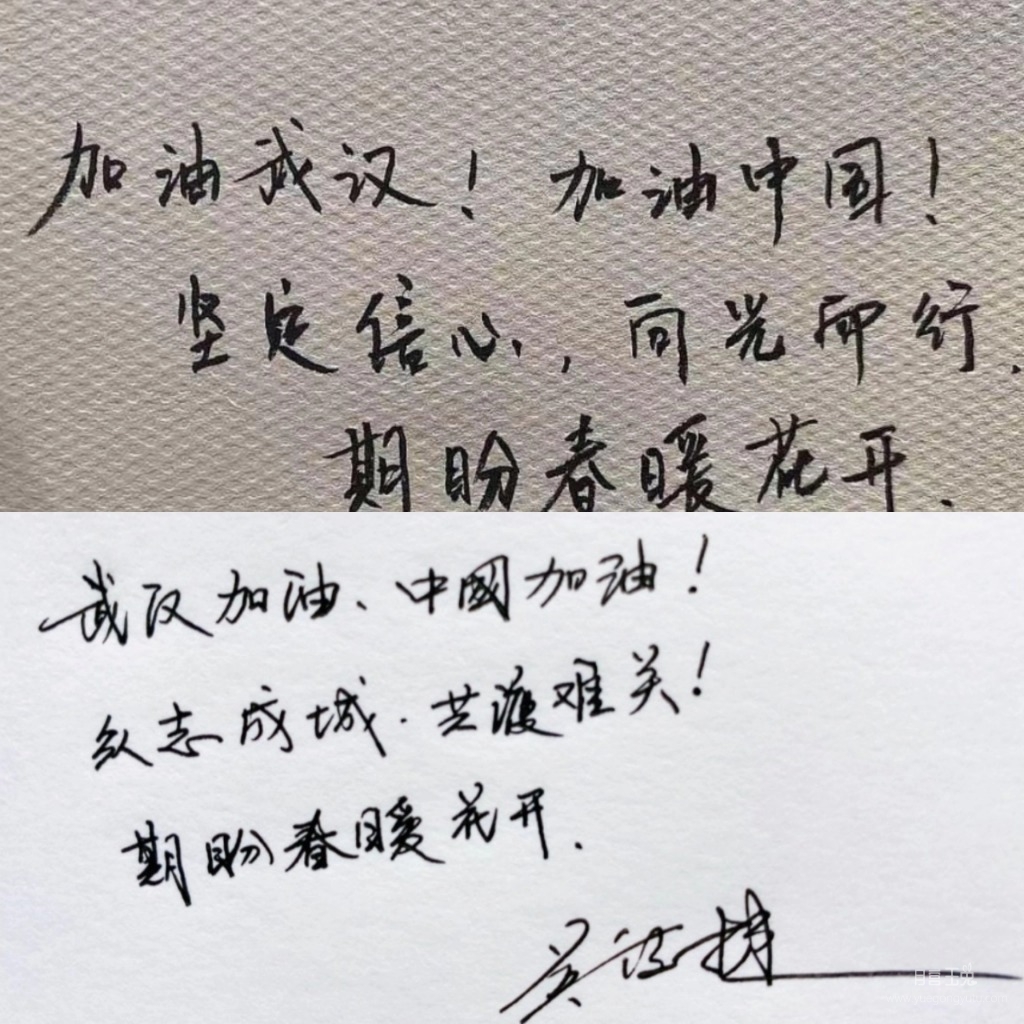 加油武汉！加油中国！
坚定信心，向光而行.
期盼春暖花开.
武汉加油、中國加油！
众志成城.共渡难关！
期盼春暖花开.